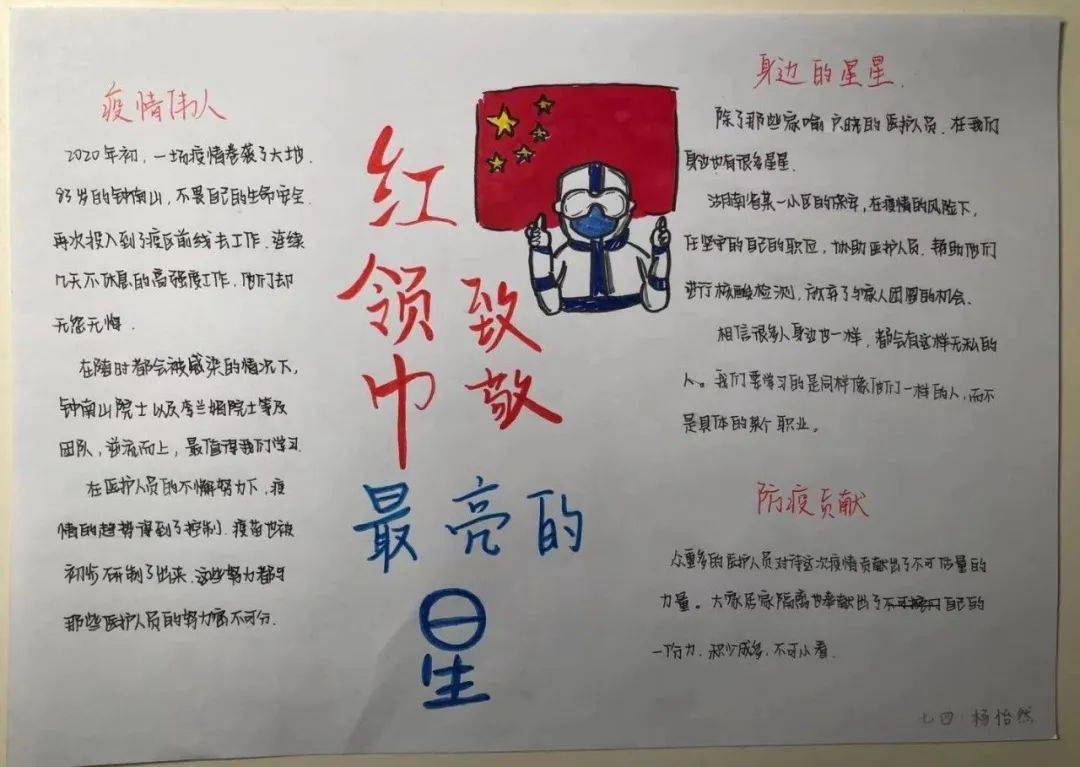 疫情伟人
2020年初，一场疫情卷袭了大地.
83岁的钟南山，不畏自己的生命安全.
再次投入到了疫区前线去工作.连续
几天不休息的高强度工作.他们却
无怨无悔.
在随时都会被感染的情况下，
钟南山院士以及李兰娟院士等及
团队，逆流而上，最值得我们学习.
在医护人员的不懈努力下，疫
情的趋势得到了控制.疫苗也被
初步研制了出来.这些努力都与
那些医护人员的努力密不可分.
红领巾
致敬
最亮的
星
身边的星星.
除了那些家喻户晓的医护人员.在我们
身边也有很多星星.
湖南省某一小区的保安，在疫情的风险下，
在坚守的自己的职位，协助医护人员.帮助他们
进行核酸检测，放弃了与家人团圆的机会.
相信很多人身边也一样，都会有这样无私的
人。我们要学习的是同样像他们一样的人，而不
是具体的某个职业。
防疫贡献
众多的医护人员对待这次疫情贡献出了不可估量的
力量。大家居家隔离也奉献出了自己的
一份力.积少成多，不可小看.
七四 杨怡然